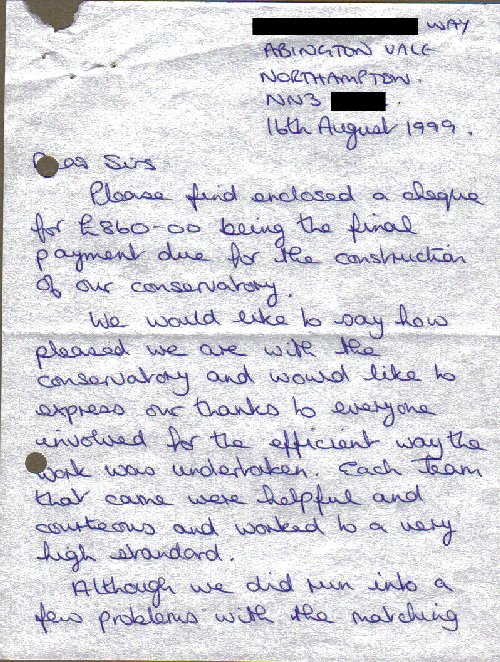 WAY
ABINGTON VALE
NORTHAMPTON.
NN3 .
16th August 1999.
Dear Sirs
Please find enclosed a cheque
for £860-00 being the final
payment due for the construction
of our conservatory.
We would like to say how
pleased we are with the
conservatory and would like to
express our thanks to everyone
involved for the efficient way the
work was undertaken. Each Team
that came were helpful and
courteous and worked to a very
high standard.
Although we did run into a
few problems with the matching